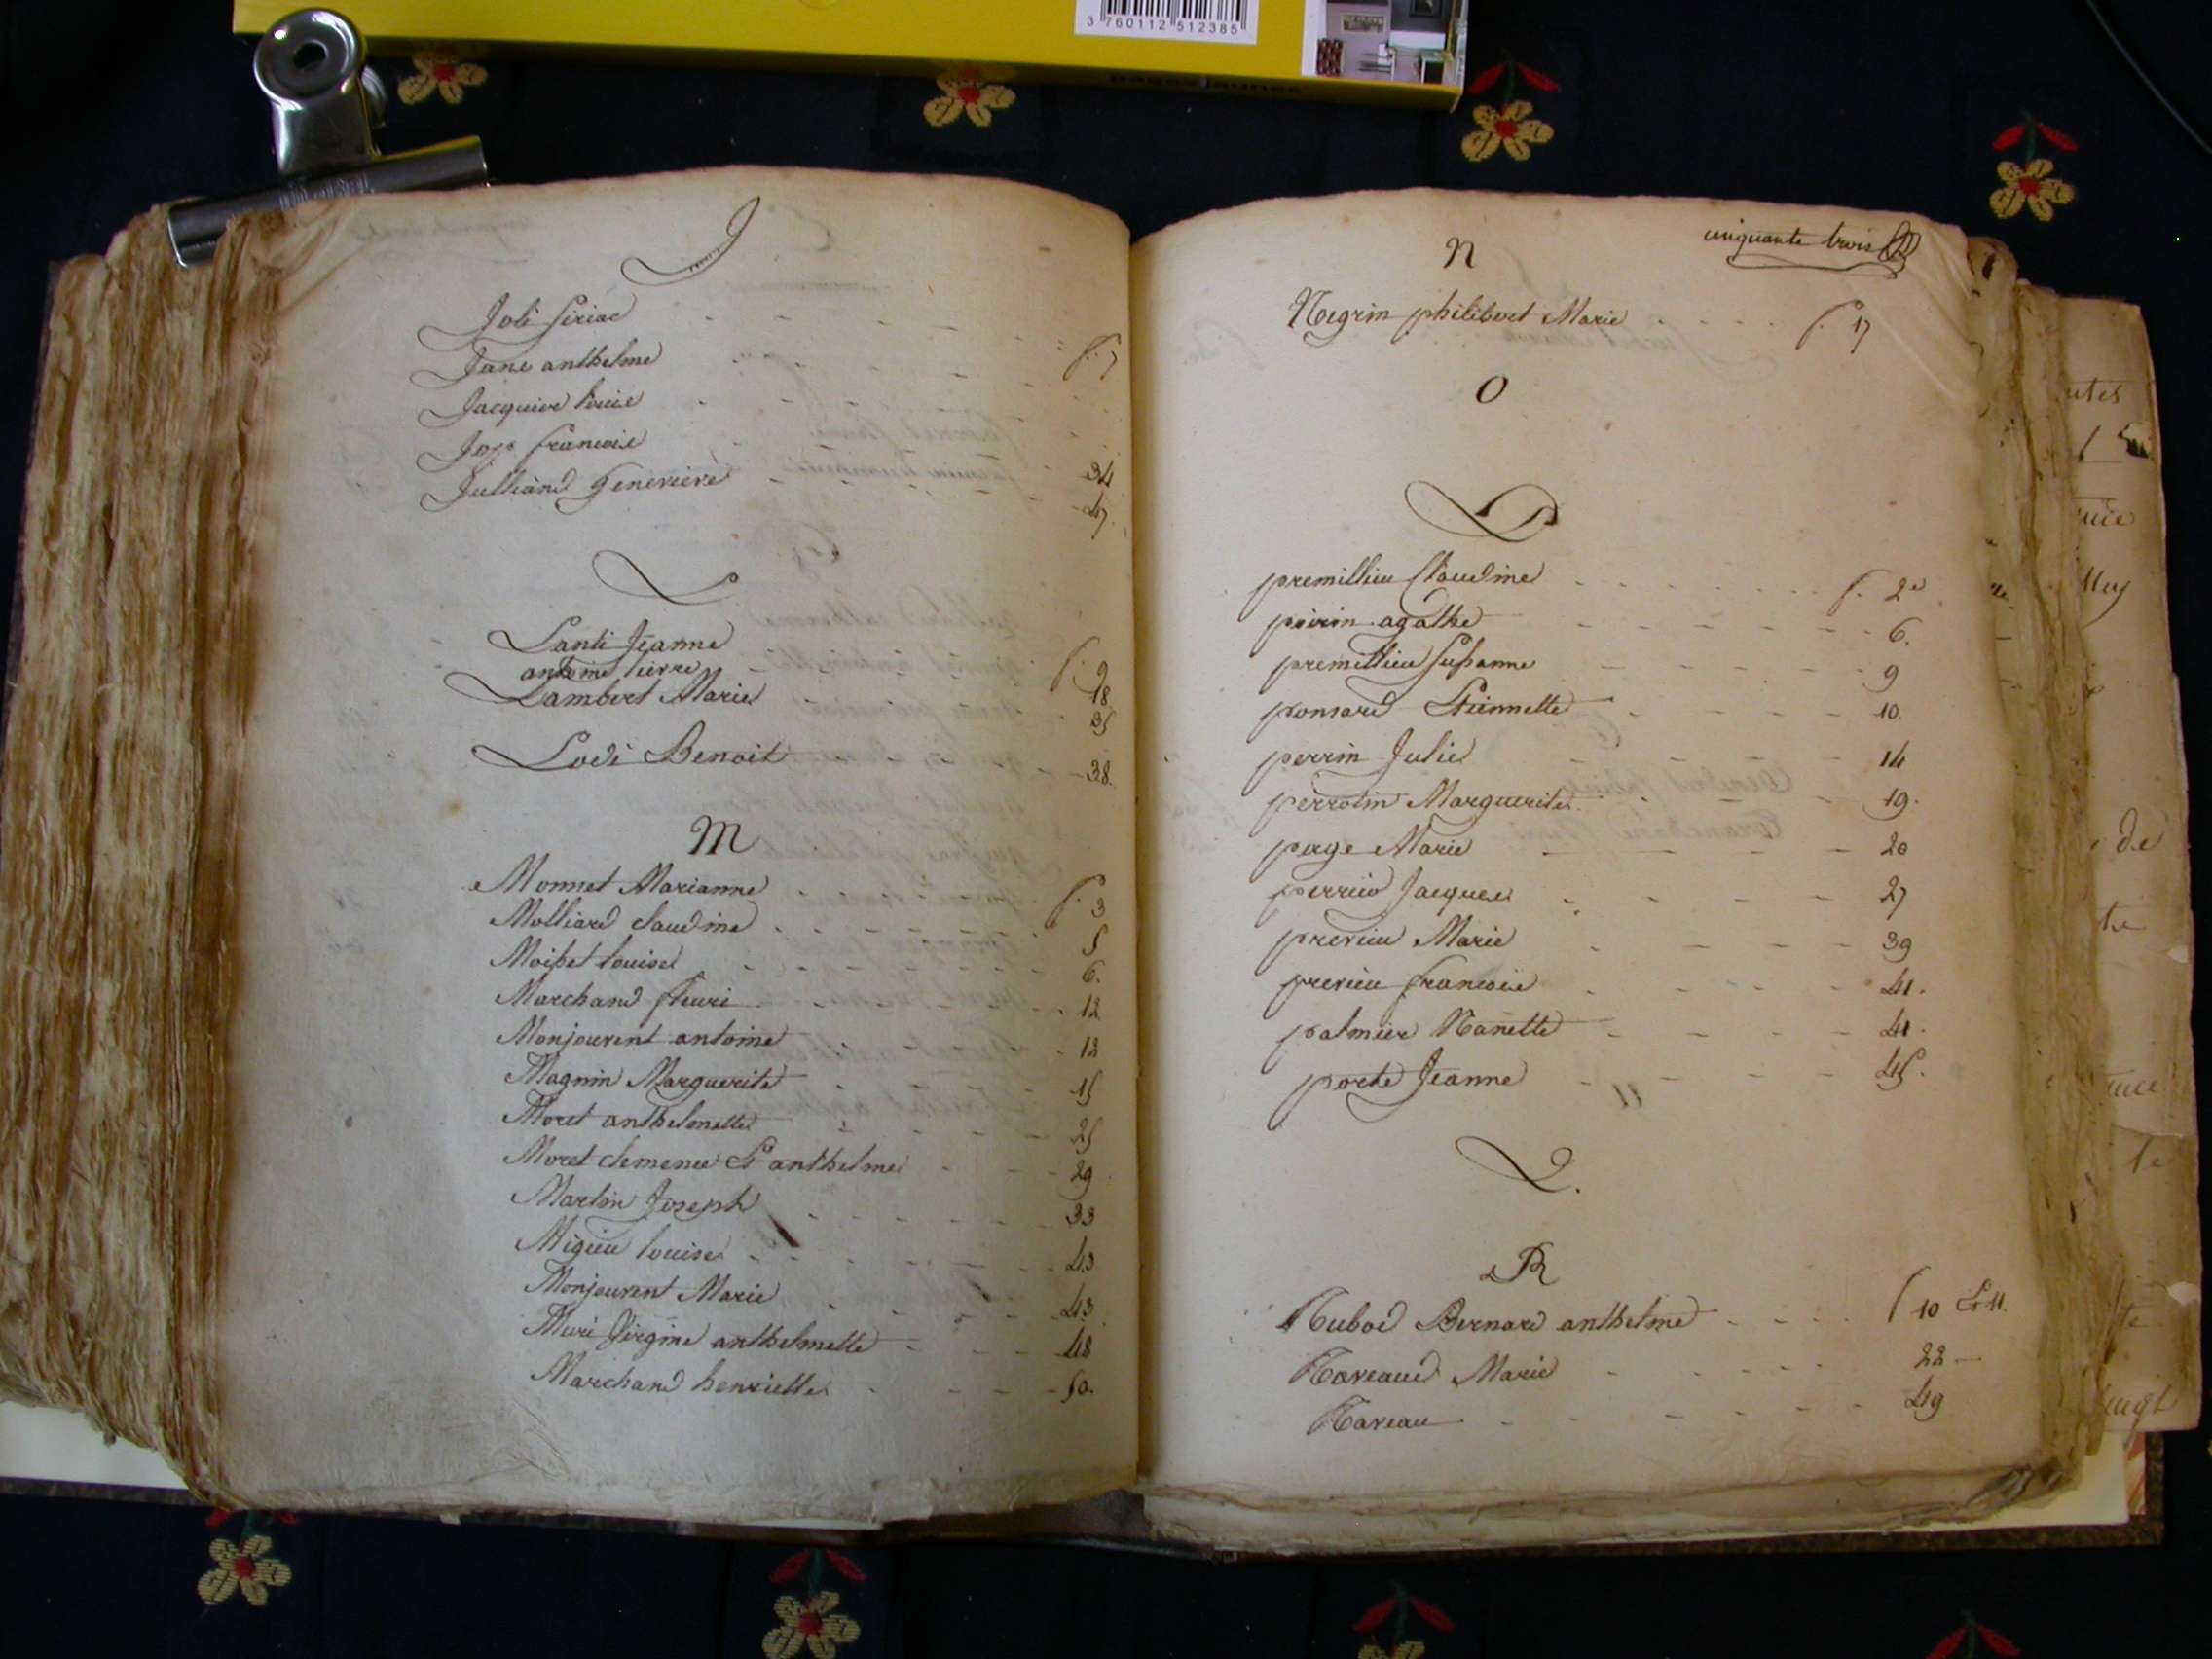 3 760112 512385
J
Joli Siriac
Jane anthelme f. 7
Jacquier louise
Joye francoise 34
Julliand Genevieve 47
L
Lanti Jeanne f. 9
antoine pierre 18
Lambert Marie 35
Lodi Benoit 38.
M
Monnet Marianne f. 3
Molliard claudine 5
Moisset louise 6.
Marchand fleuri 12
Monjouvent antoine 12
Magnin Marguerite 15
Moret anthelmette 25
Moret clemence Et anthelme 29
Martin Joseph 33
Migieu louise 43
Monjouvent Marie 43
Muri Virgine anthelmette 48
Marchand henriette 50.
cinquante trois
N
Negrin philibert Marie f. 17
O
P
premillieu Claudine f. 2e
poirin agathe 6.
premillieu Susanne 9
ponsard Etiennette 10.
perrin Julie 14
perrotin Marguerite 19.
page Marie 20
perrier Jacques 27
prerieu Marie 39
prerieu francoise 41.
palmier Nanette 41.
porte Jeanne 45.
Q.
R
Rubod Bernard anthelme f 10 Et 11.
Raveaud Marie 22
Raveau 49
utes
uce
lley
de
te
uce
te
te
vingt